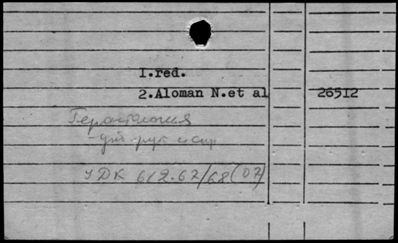 I.red.
2.Aloman N.et al 26512
Геронтология
УДК 612.67/68(07)